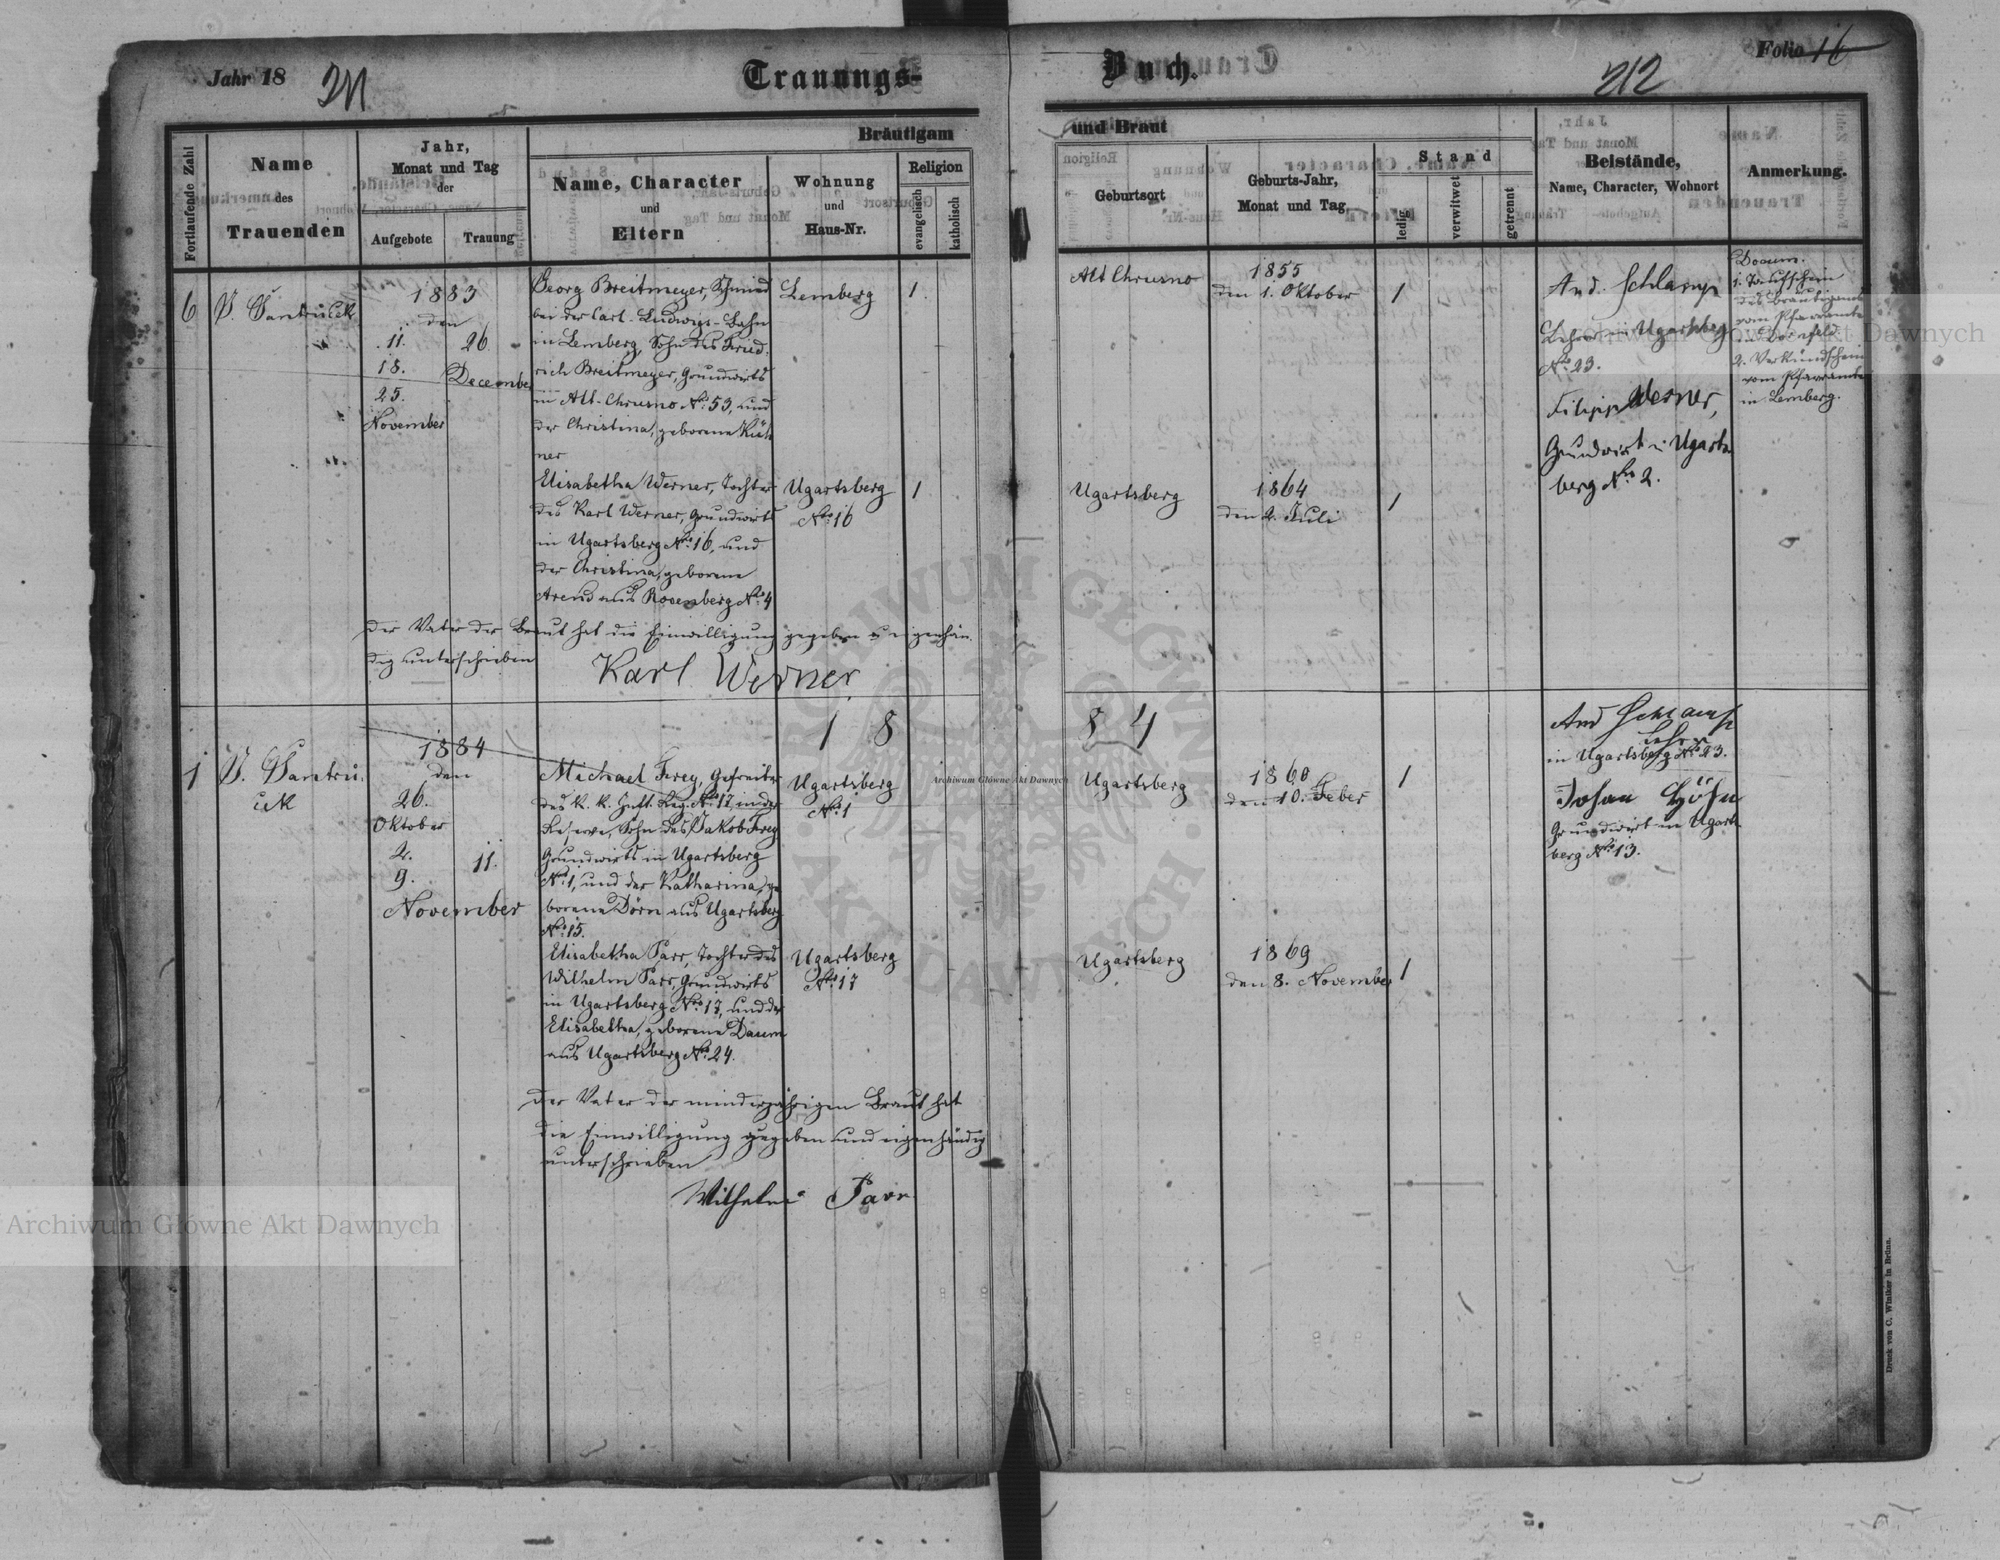 Jahr 18
211
Trauungs-
Buch.
212
Folio 16
Fortlaufende Zahl
Name
des
Trauenden
Jahr,
Monat und Tag
der
Aufgebote
Trauung
Bräutigam
Name, Character
und
Eltern
Wohnung
und
Haus-Nr.
Religion
evangelisch
katholisch
und Braut
Geburtsort
Geburts-Jahr,
Monat und Tag
Stand
ledig
verwitwet
getrennt
Beistände,
Name, Character, Wohnort
Anmerkung.
6
1883
den
11.
18.
25.
November
26.
December
Georg Breitmeyer, Schmied
bei der Carl-Ludwigs-Bahn
in Lemberg, Sohn des Fried-
rich Breitmeyer, Grundwirts
in Alt-Chrusno No. 53, und
der Christina, geborene Küh
ner
Lemberg
1
Alt Chrusno
1855
den 1. Oktober
1
And. Schlamp
Lehrer in Ugartsberg
No. 23.
Filipp Werner,
Grundwirt in Ugarts-
berg No. 2.
Docum.
1. Taufschein
des Bräutigams
vom Pfarramte
in Dornfeld.
2. Verkündschein
vom Pfarramte
in Lemberg.
Elisabetha Werner, Tochter
des Karl Werner, Grundwirts
in Ugartsberg No. 16, und
der Christina, geborene
Arend aus Rosenberg No. 4
Ugartsberg
No. 16
1
Ugartsberg
1864
den 2. Juli
1
Der Vater der Braut hat die Einwilligung gegeben u eigenhän-
dig unterschrieben
Karl Werner
18
84
1
1884
den
26.
Oktober
2.
9.
11.
November
Michael Frey, Gefreiter
des k. k. Inft. Reg. No. 17, in der
Reserve, Sohn des Jakob Frey
Grundwirts in Ugartsberg
No. 1, und der Katharina, ge
borene Dörn aus Ugartsberg
No. 15.
Ugartsberg
No. 1
Ugartsberg
1860
den 10. Feber
1
And Schlamp
Lehrer
in Ugartsberg No. 23.
Johan Höhn
Grundwirt in Ugarts-
berg No. 13.
Elisabetha Parr, Tochter des
Wilhelm Parr, Grundwirts
in Ugartsberg No. 17, und der
Elisabetha, geborene Daum
aus Ugartsberg No. 24.
Ugartsberg
No. 17
Ugartsberg
1869
den 8. November
1
Der Vater der minderjährigen Braut hat
die Einwilligung gegeben und eigenhändig
unterschrieben
Wilhelm Parr
Druck von C. Winiker in Brünn.
Archiwum Główne Akt Dawnych
Archiwum Główne Akt Dawnych
Archiwum Główne Akt Dawnych
ARCHIWUM GŁÓWNE AKT DAWNYCH